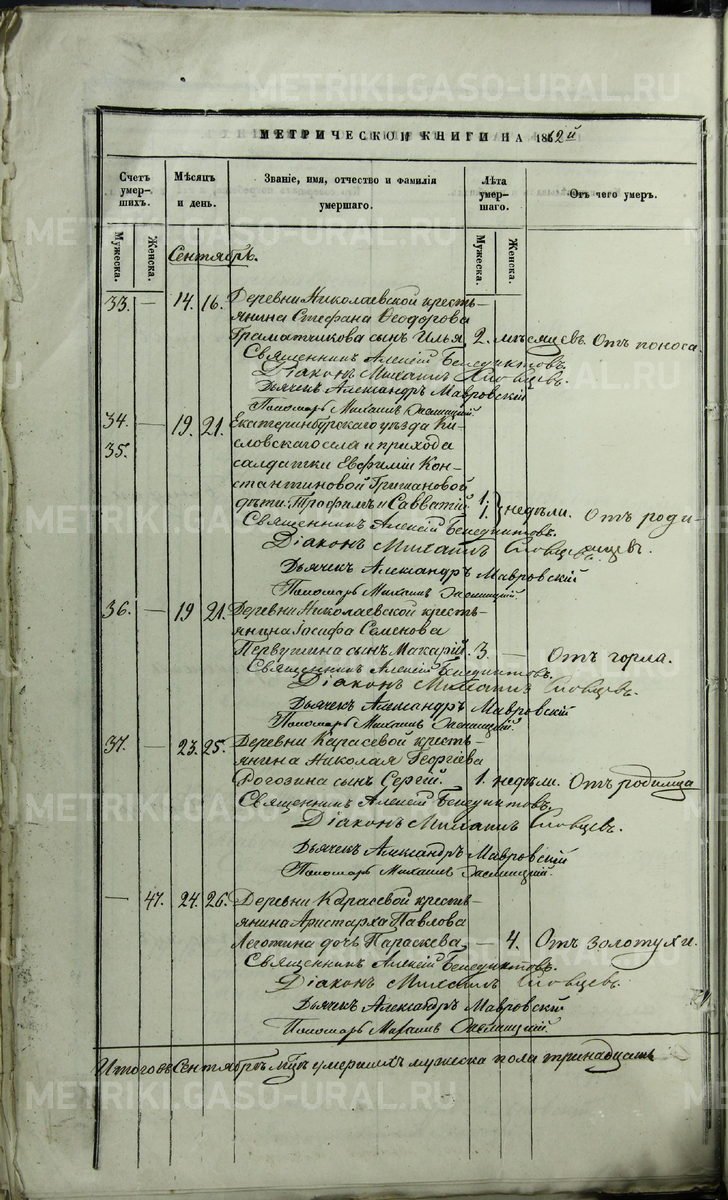 METRIKI.GASO-URAL.RU
МЕТРИЧЕСКОЙ КНИГИ НА 1862й
Счетъ умер-шихъ.
Мѣсяцъ и день.
Званіе, имя, отчество и фамилія умершаго.
Лѣта умер-шаго.
Отъ чего умеръ.
Мужеска.
Женска.
Мужеска.
Женска.
Сентябрь.
33. — 14. 16. Деревни Николаевской кресть-
янина Стефана Ѳеодорова
Граматчикова сынъ Илья, 2. мѣсяцевъ. Отъ поноса
Священникъ Алексій Бенедиктовъ
Діаконъ Михаилъ Словцевъ.
Дьячекъ Александръ Мавровскій
Пономарь Михаилъ
34. — 19. 21. Екатеринбургскаго уѣзда Ки-
35. словскаго села и прихода
салдатки Евфиміи Кон-
стантиновой Гришановой
дѣти: Трофимъ и Савватій 1. 1. недѣли. Отъ роди-
Священникъ Алексій Бенедиктовъ.
Діаконъ Михаилъ Словцевъ.
мцевъ.
Дьячекъ Александръ Мавровскій
Пономарь Михаилъ
36. — 19 21. Деревни Николаевской кресть-
янина Іосифа Семенова
Первушина сынъ Макарій. 3. — Отъ горла.
Священникъ Алексій Бенедиктовъ.
Діаконъ Михаилъ Словцевъ.
Дьячекъ Александръ Мавровскій
Пономарь Михаилъ
37. — 23. 25. Деревни Карасевой кресть-
янина Николая Георгіева
Рогозина сынъ Сергій. 1. недѣли. Отъ родимца
Священникъ Алексій Бенедиктовъ.
Діаконъ Михаилъ Словцевъ.
Дьячекъ Александръ Мавровскій
Пономарь Михаилъ
— 47. 24. 26. Деревни Карасевой кресть-
янина Аристарха Павлова
Леготина дочь Параскева, — 4. Отъ золотухи.
Священникъ Алексій Бенедиктовъ.
Діаконъ Михаилъ Словцевъ.
Дьячекъ Александръ Мавровскій
Пономарь Михаилъ
Итого въ Сентябрѣ мцѣ умершихъ мужеска пола тринадцать